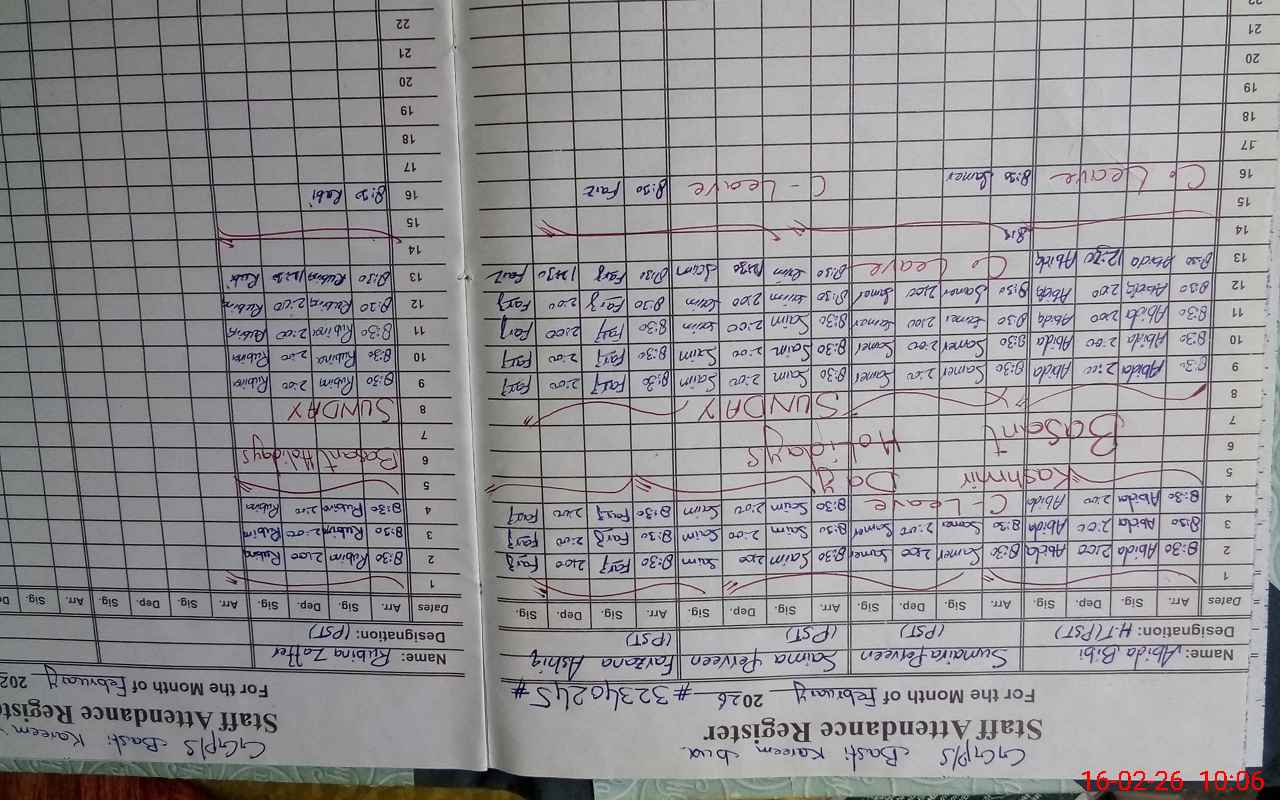 GGP/S Basti Kareem Dua
Staff Attendance Register
For the Month of February 2026 #32340245#
Name: Abida Bibi Sumaira Perveen Saima Perveen Farzana Ashiq
Designation: H.T(PST) (PST) (PST) (PST)
Dates Arr. Sig. Dep. Sig. Arr. Sig. Dep. Sig. Arr. Sig. Dep. Sig. Arr. Sig. Dep. Sig.
1
2 8:30 Abida 2:00 Abida 8:30 Samer 2:00 Samer 8:30 Saim 2:00 Saim 8:30 Farz 2:00 Farz
3 8:30 Abida 2:00 Abida 8:30 Samer 2:00 Samer 8:30 Saim 2:00 Saim 8:30 Farz 2:00 Farz
4 8:30 Abida 2:00 Abida C-Leave 8:30 Saim 2:00 Saim 8:30 Farz 2:00 Farz
5 Kashmir Day
6 Basant Holidays
7
8 SUNDAY
9 8:30 Abida 2:00 Abida 8:30 Samer 2:00 Samer 8:30 Saim 2:00 Saim 8:30 Farz 2:00 Farz
10 8:30 Abida 2:00 Abida 8:30 Samer 2:00 Samer 8:30 Saim 2:00 Saim 8:30 Farz 2:00 Farz
11 8:30 Abida 2:00 Abida 8:30 Samer 2:00 Samer 8:30 Saim 2:00 Saim 8:30 Farz 2:00 Farz
12 8:30 Abida 2:00 Abida 8:30 Samer 2:00 Samer 8:30 Saim 2:00 Saim 8:30 Farz 2:00 Farz
13 8:30 Abida 12:30 Abida C. Leave 8:30 Saim 12:30 Saim 8:30 Farz 12:30 Farz
14
15
16 C. Leave 8:30 Samer C-Leave 8:30 Farz
17
18
19
20
21
22
GGP/S Basti Kareem
Staff Attendance Register
For the Month of February 202
Name: Rubina Zaffer
Designation: (PST)
Dates Arr. Sig. Dep. Sig. Arr. Sig. Dep. Sig. Arr. Sig.
1
2 8:30 Rubina 2:00 Rubina
3 8:30 Rubina 2:00 Rubina
4 8:30 Rubina 2:00 Rubina
5
6 Basant Holidays
7
8 SUNDAY
9 8:30 Rubina 2:00 Rubina
10 8:30 Rubina 2:00 Rubina
11 8:30 Rubina 2:00 Rubina
12 8:30 Rubina 2:00 Rubina
13 8:30 Rubina 12:30 Rubi
14
15
16 8:30 Rubi
17
18
19
20
21
22
16-02-26 10:06